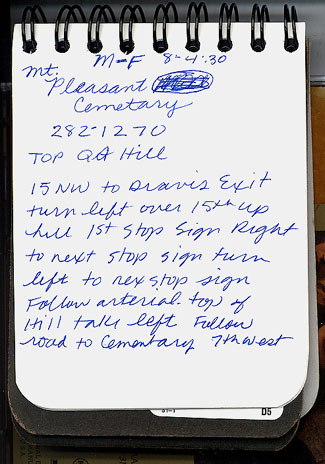 M-F 8-4:30
Mt.
Pleasant
Cemetary
282-1270
TOP QA Hill
15 NW to Dravis Exit
turn left over 15th up
hill 1st Stop Sign Right
to next stop sign turn
left to nex stop sign
Follow arterial. top of
Hill take left Follow
road to Cementary 7th West
D5